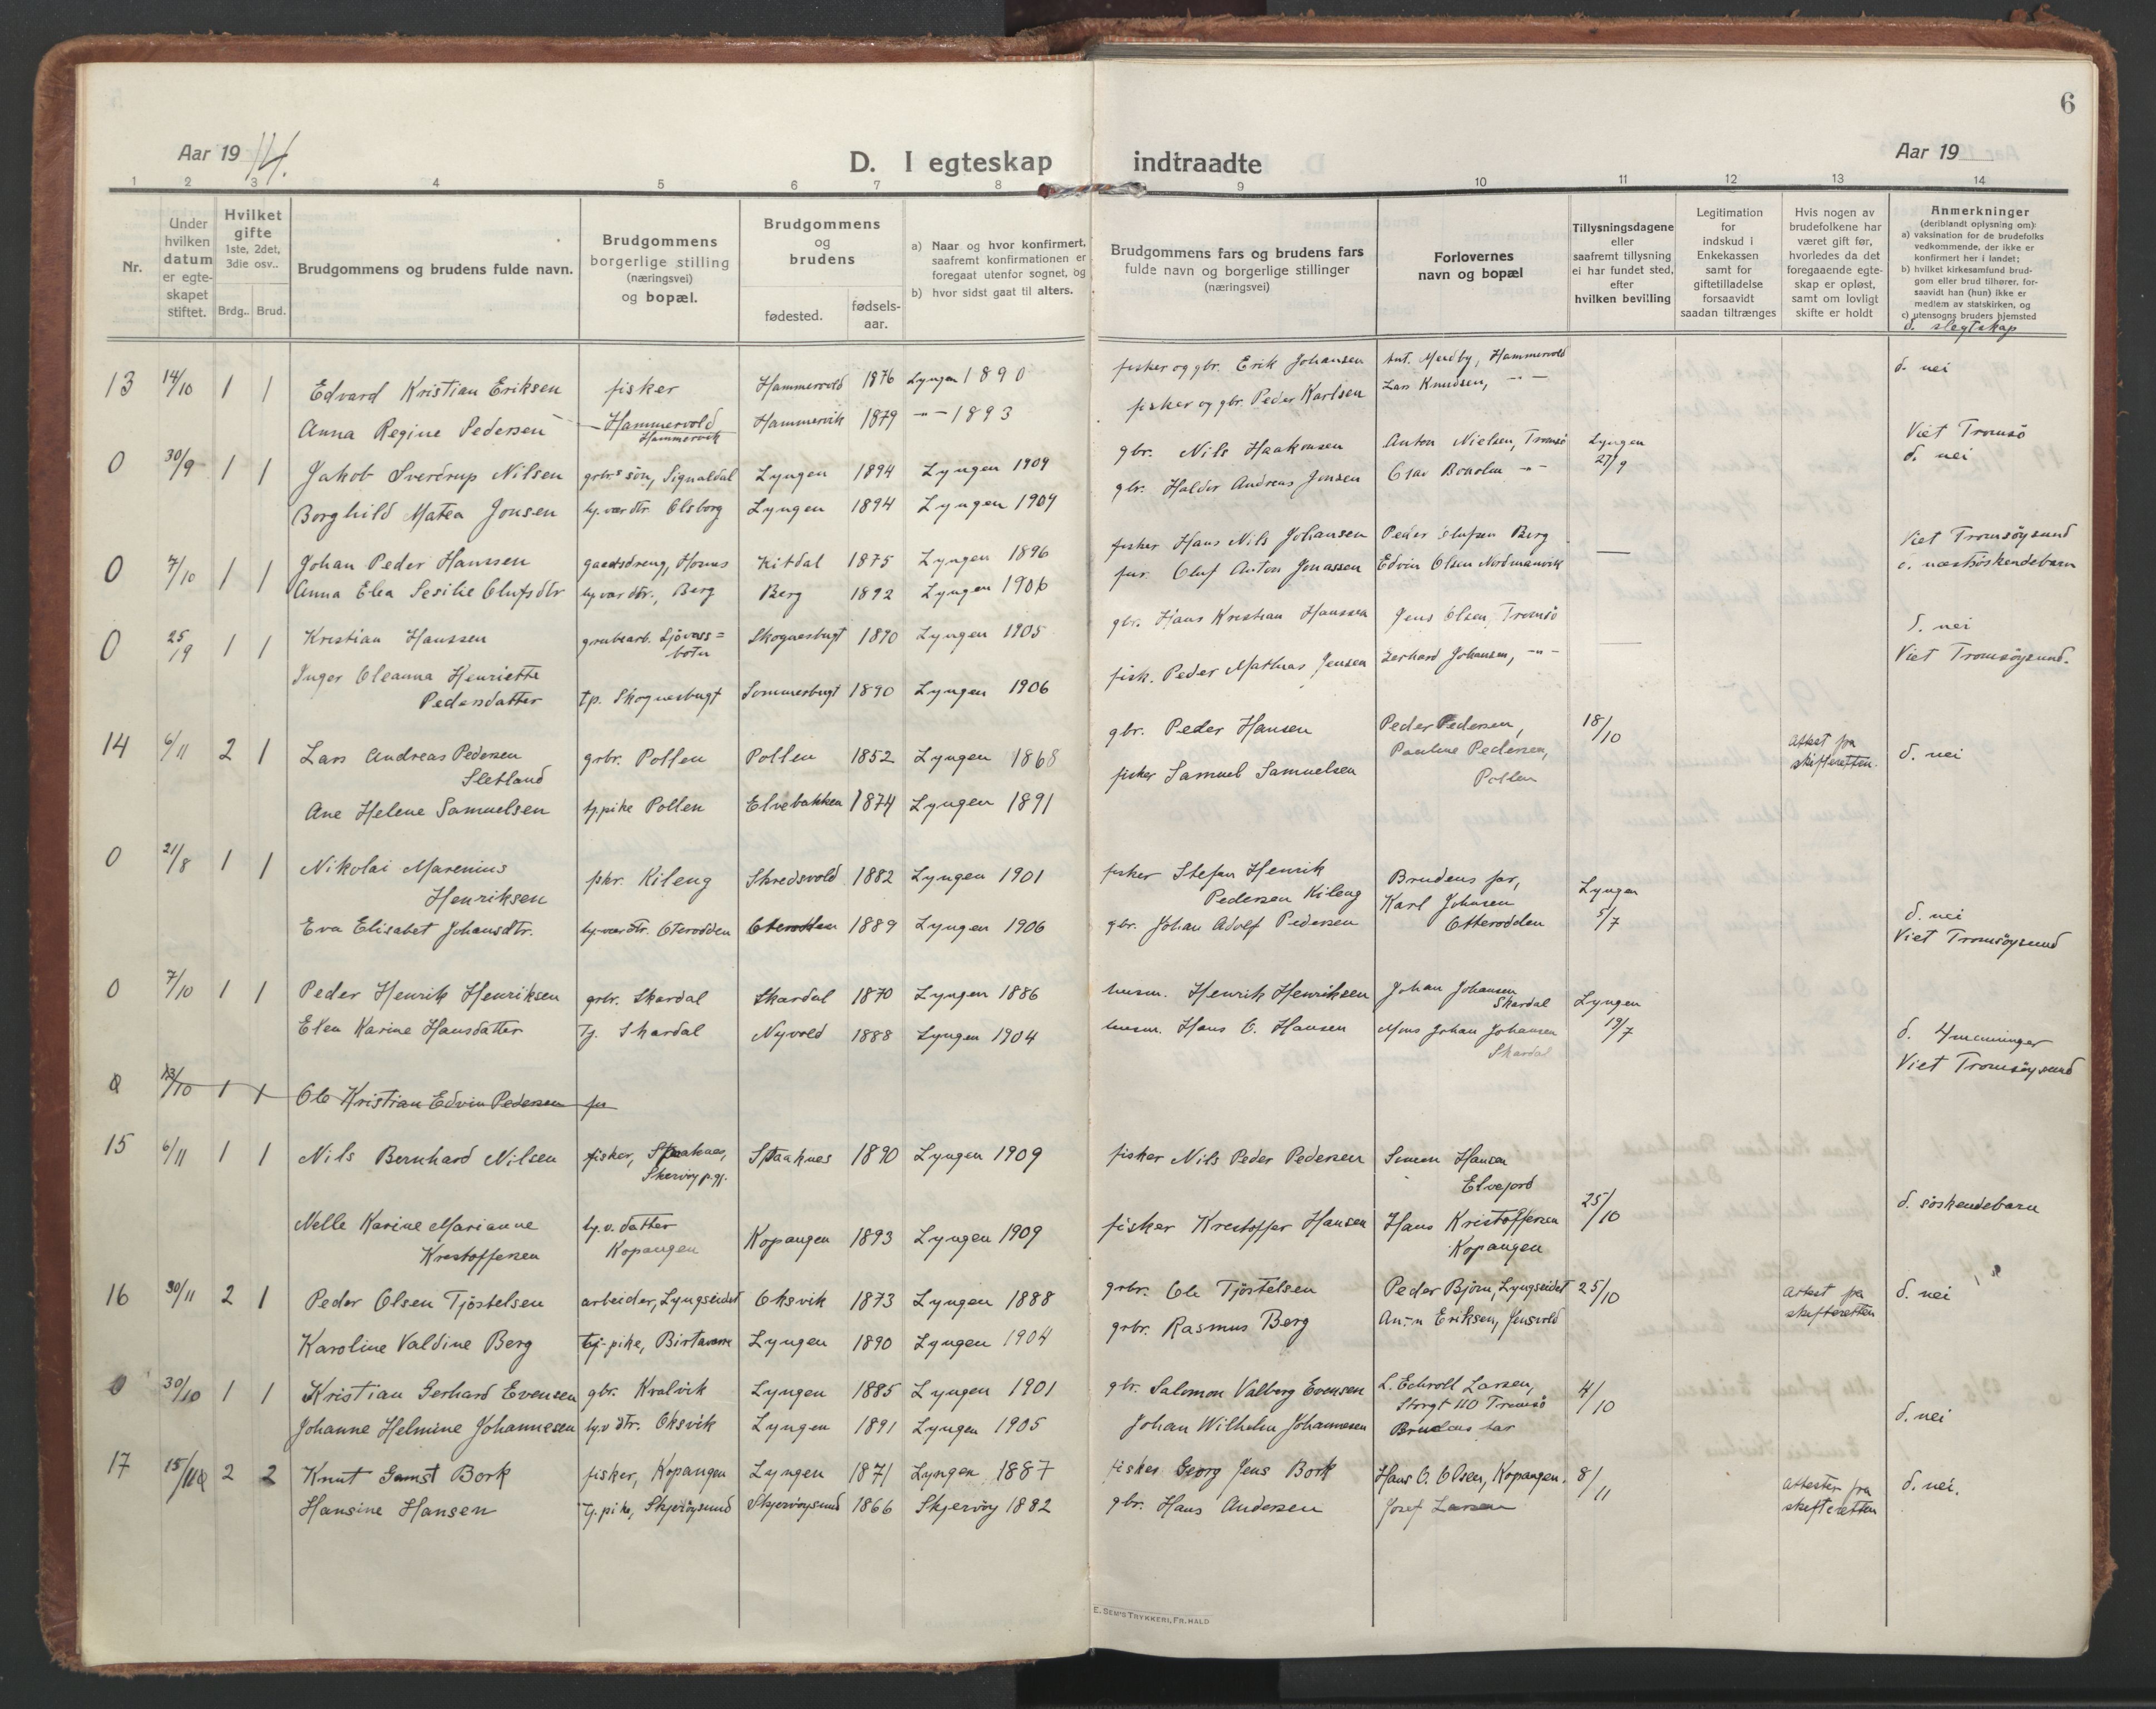 6
Aar 1914.
D. I egteskap indtraadte
Aar 19
1 2 3 4 5 6 7 8 9 10 11 12 13 14
Nr.
Under hvilken datum er egteskapet stiftet.
Hvilket gifte 1ste, 2det, 3die osv..
Brdg.. Brud.
Brudgommens og brudens fulde navn.
Brudgommens borgerlige stilling (næringsvei) og bopæl.
Brudgommens og brudens
fødested. fødsels-aar.
a) Naar og hvor konfirmert, saafremt konfirmationen er foregaat utenfor sognet, og
b) hvor sidst gaat til alters.
Brudgommens fars og brudens fars fulde navn og borgerlige stillinger (næringsvei)
Forlovernes navn og bopæl
Tillysningsdagene eller saafremt tillysning ei har fundet sted, efter hvilken bevilling
Legitimation for indskud i Enkekassen samt for giftetilladelse forsaavidt saadan tiltrænges
Hvis nogen av brudefolkene har været gift før, hvorledes da det foregaaende egteskap er opløst, samt om lovligt skifte er holdt
Anmerkninger (deriblandt oplysning om):
a) vaksination for de brudefolks vedkommende, der ikke er konfirmert her i landet;
b) hvilket kirkesamfund brudgom eller brud tilhører, forsaavidt han (hun) ikke er medlem av statskirken, og
c) utensogns bruders hjemsted
d. slegtskap
13 14/10 1 1 Edvard Kristian Eriksen fisker Hammervold 1876 Lyngen 1890 fisker og gbr. Erik Johansen Ant. Merdby, Hammervold d. nei
Anna Regine Pedersen Hammervold Hammervik Hammervik 1879 -"- 1893 fisker og gbr. Peder Karlsen Lars Knudsen, -"-
0 30/9 1 1 Jakob Sverdrup Nilsen grbrs søn, Signaldal Lyngen 1894 Lyngen 1909 gbr. Nils Haakonsen Anton Nielsen, Tromsø Lyngen 27/9 Viet Tromsö d. nei
Borghild Matea Jonsen hj.vær.dtr. Olsborg Lyngen 1894 Lyngen 1909 gbr. Haldor Andreas Jensen
0 7/10 1 1 Johan Peder Hanssen gaardsdreng, Kitdal 1875 Lyngen 1896 fisker Hans Nils Johansen Peder Berg — Viet Tromsöysund
Anna Elea Sesilie Olufsdtr hj.vær dtr., Berg Berg 1892 Lyngen 1906 Oluf Anton Jonassen Edvin Olsen Nordmanvik c. næstsöskendebarn
0 25/19 1 1 Kristian Hanssen grubearb. Sjövass=botn Skognesbugt 1890 Lyngen 1905 gbr. Hans Kristian Hanssen Jens Olsen Tromsö — d. nei
Inger Oleanna Henriette Pedersdatter tp. Skognesbugt Sommerbugt 1890 Lyngen 1906 fisk. Peder Mathias Jensen Gerhard Johansen, -"- Viet Tromsöysund.
14 6/11 2 1 Lars Andreas Pedersen Sletland grbr. Pollen Pollen 1852 Lyngen 1868 gbr. Peder Hansen Peder Pedersen, 18/10 Attest fra skifteretten. d. nei
Ane Helene Samuelsen tj.pike Pollen Elvebakken 1874 Lyngen 1891 fisker Samuel Samuelsen Pauline Pedersen, Pollen
0 21/8 1 1 Nikolai Marenius Henriksen fskr. Kileng Skredsvold 1882 Lyngen 1901 fisker Stefan Henrik Pedersen Kileng Brudens far, Lyngen 5/7
Eva Elisabet Johansdtr. hj.vær dtr. Oterodden Oterodden 1889 Lyngen 1906 gbr. Johan Adolf Pedersen Karl Johnsen Otterodden d. nei Viet Tromsöysund
0 7/10 1 1 Peder Henrik Henriksen grbr. Skardal Skardal 1870 Lyngen 1886 husm. Henrik Henriksen Johan Johansen Skardal Lyngen 19/7
Elen Karine Hansdatter Tj. Skardal Nyvold 1888 Lyngen 1904 husm. Hans O. Hansen Mons Johan Johansen Skardal d. 4menninger Viet Tromsöysund
0 13/10 1 1 Ole Kristian Edvin Pedersen
15 6/11 1 1 Nils Bernhard Nilsen fisker, Spaaknes, Skervöy p.gj. Spaaknes 1890 Lyngen 1909 fisker Nils Peder Pedersen Simon Hansen Elvejord 25/10
Nelle Karine Marianne Kristoffersen hj.v. datter Kopangen Kopangen 1893 Lyngen 1909 fisker Kristoffer Hansen Hans Kristoffersen Kopangen d. söskendebarn
16 30/11 2 1 Peder Olsen Tjöstelsen arbeider, Lyngseidet Oksvik 1873 Lyngen 1888 grbr. Ole Tjöstelsen Peder Björn, Lyngseidet 25/10 Attest fra skifteretten d. nei
Karoline Valdine Berg tj-pike, Birtavarre Lyngen 1890 Lyngen 1904 grbr. Rasmus Berg Eriksen, Jensvold
0 30/10 1 1 Kristian Gerhard Evensen gbr. Kvalvik Lyngen 1885 Lyngen 1901 gbr. Salomon Valberg Evensen L. Echroll Larsen, Storgt 110 Tromsö 4/10
Johanne Helmine Johannesen hj.v dtr. Oksvik Lyngen 1891 Lyngen 1905 Johan Wilhelm Johannesen Brudens far d. nei
17 15/11 2 2 Knut Gamst Bork fisker, Kopangen Lyngen 1871 Lyngen 1887 fisker Georg Jens Bork Hans O. Olsen, Kopangen. 8/11 Attester fra skifteretten d. nei.
Hansine Hansen tj.pike, Skjervöysund Skjervöysund 1866 Skjervöy 1882 gbr. Hans Andersen Josef Larsen
E. SEM'S TRYKKERI, FR. HALD